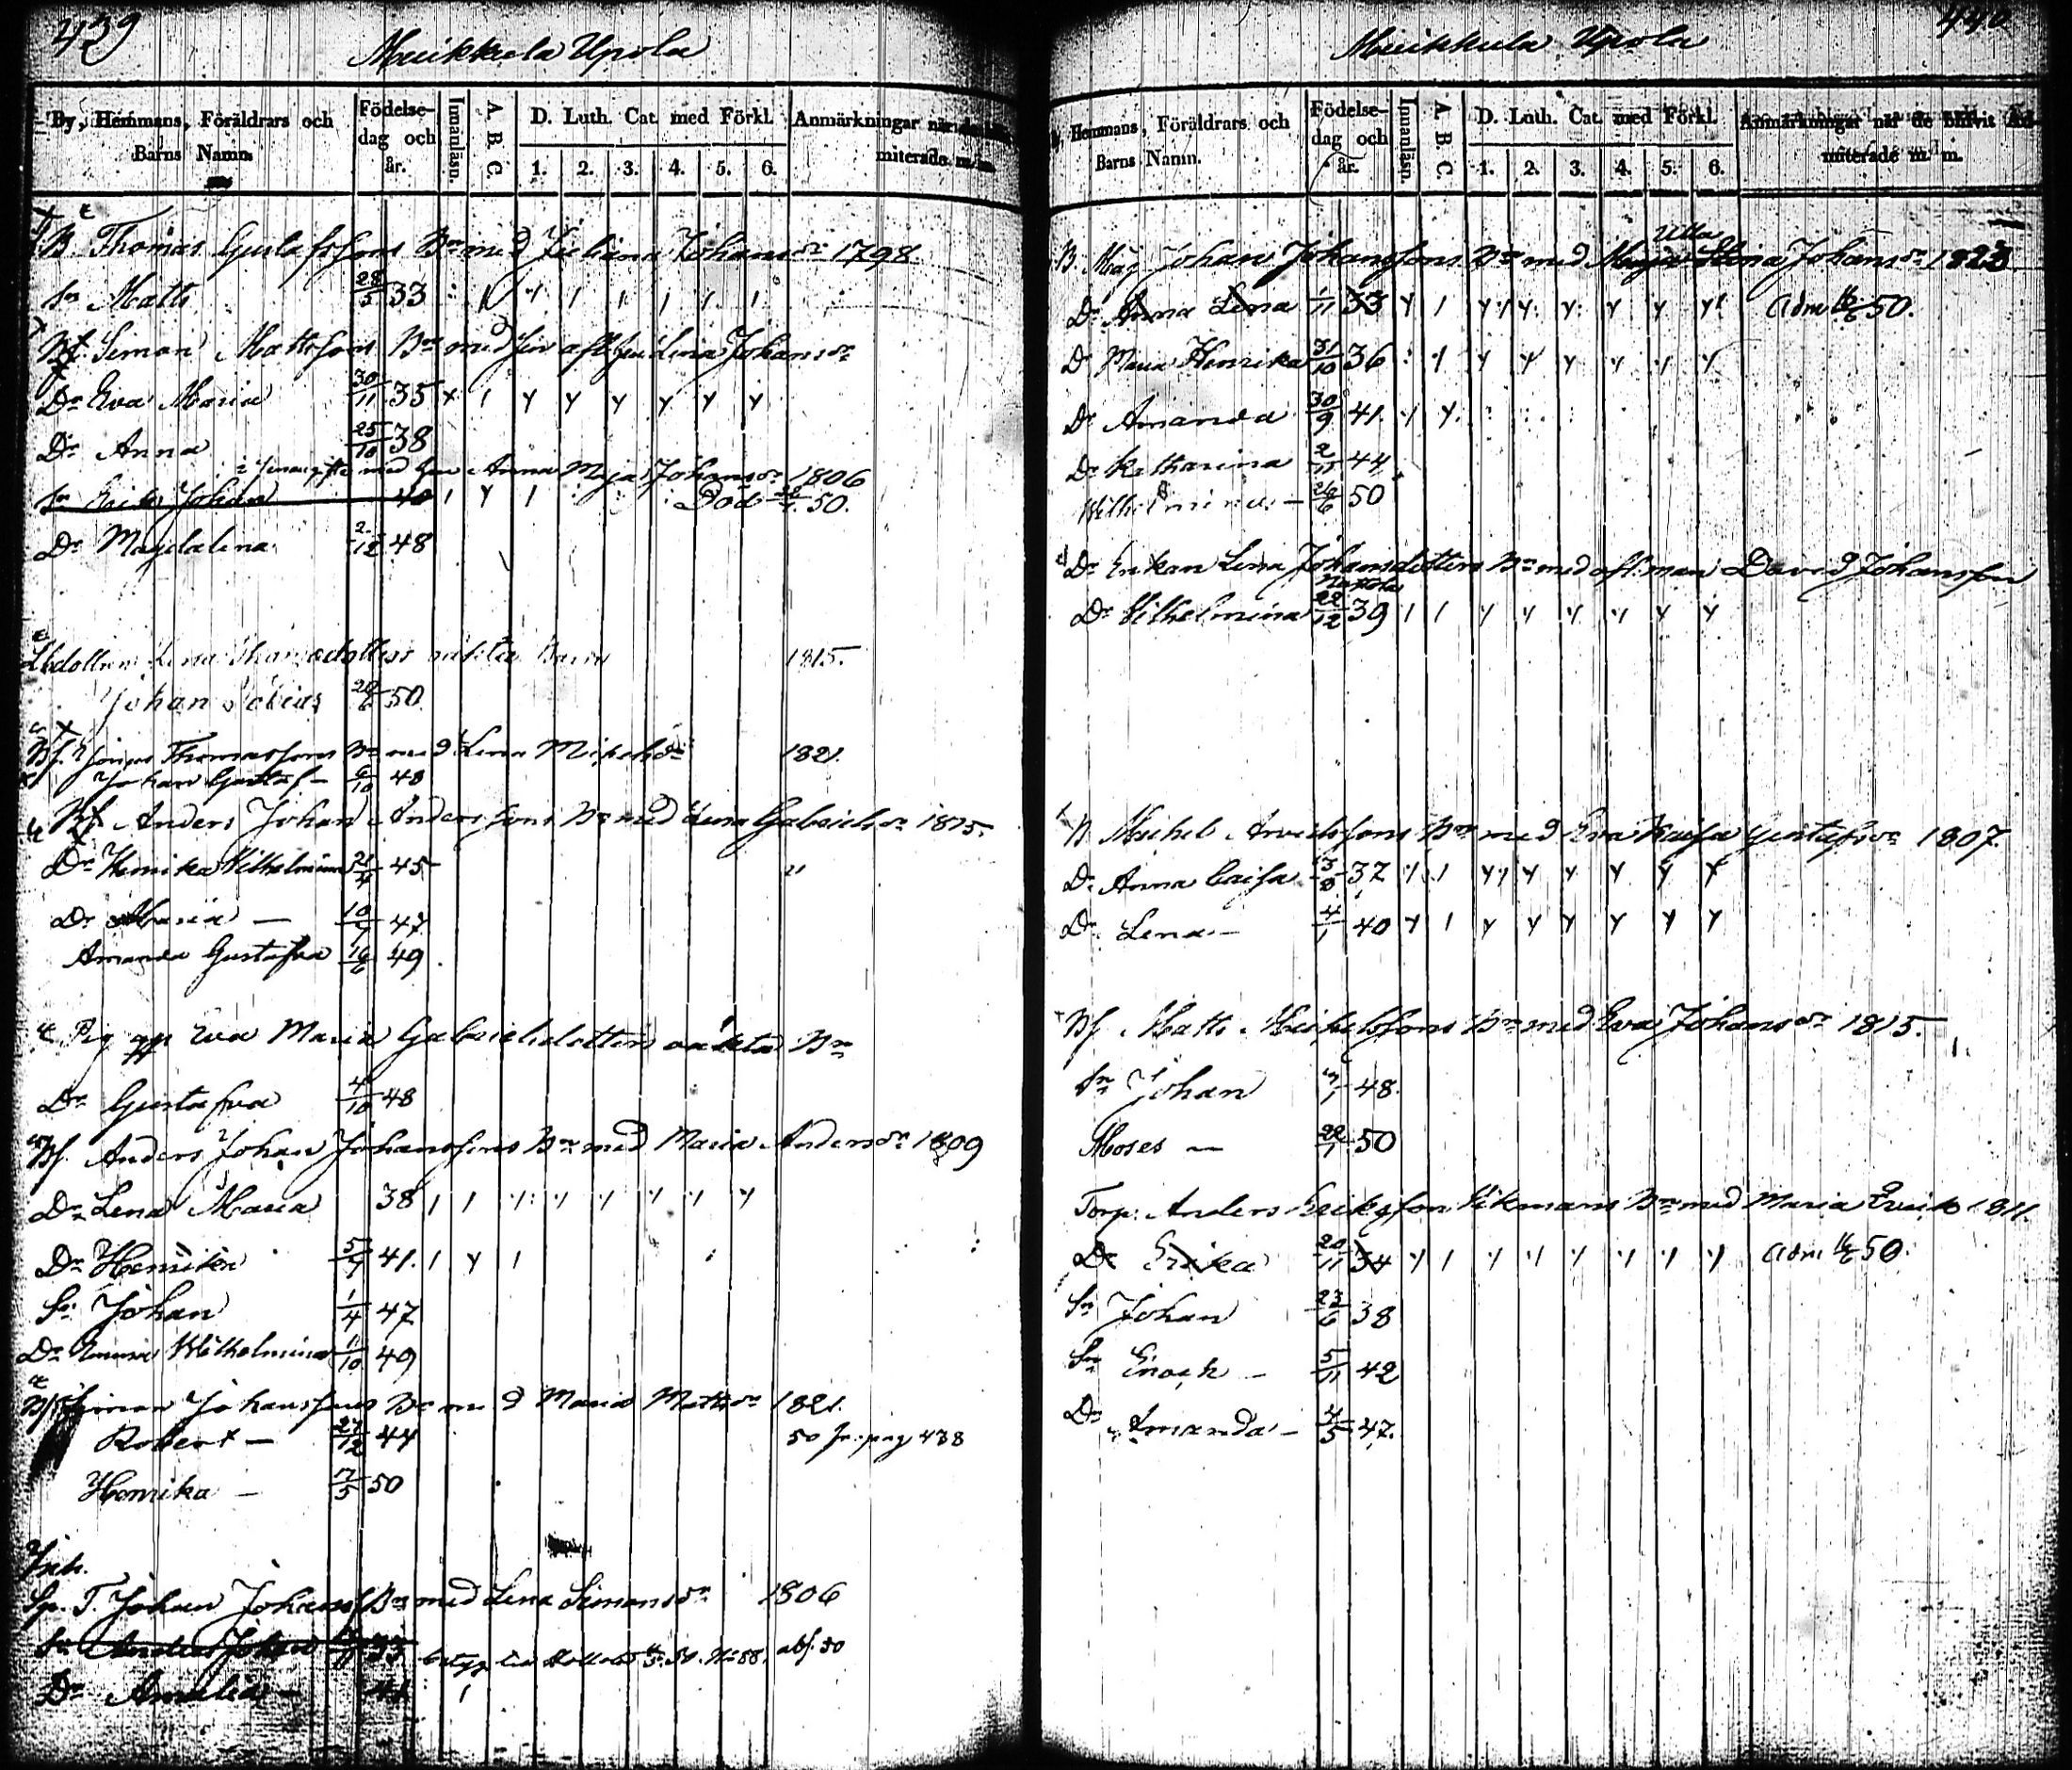 439
Muikkula Upola
By, Hemmans, Föräldrars och Barns Namn.
Födelse-dag och år.
Innanläsn.
A B C
D. Luth. Cat. med Förkl.
1. 2. 3. 4. 5. 6.
Anmärkningar när de blifvit Admiterade m. m.
B. Thomas Gustafssons Bn med Juliana Johansdr 1798.
Sn Matts 28/5 33
Bf. Simon Mattssons Bn med sin afl. hu Lina Johansdr
Dr Eva Maria 30/11 35
Dr Anna 25/10 38
med hu Anna Maja Johansdr 1806
Sn Erik Johan 40 Död 50.
Dr Magdalena 2/12 48
Lena oäkta Barn 1815.
Johan Tobias 50
Bf. Thomassons Bn med Lena Mickelsdr 1821.
Johan Gustaf - 6/10 48
Bf. Anders Johan Anderssons Bn med Lena Gabrielsdr 1815.
Dr Henrika Vilhelmina 21/4 45
Dr Maria — 47
Amanda Gustafva 16/6 49
Pig Eva Maria Gabrielsdotters oäkta Bn
Dr Gustafva 4/10 48
Bf. Anders Johan Johanssons Bn med Maria Andersdr 1809
Dr Lena Maria 38
Dr Henrika 41.
Sn Johan 1/4 47
Dr Wilhelmina 49
Bf Simon Johanssons Bn med Maria Mattsdr 1821.
Robert - 27/12 44 50 fr. pag 438
Henrika — 5 50
Inh.
Johan Johanss Bn med Lena Simonsdr 1806
Sn Anders Johan 33 abs. 50
Dr Amalia -
440
Muikkula Upola
By, Hemmans, Föräldrars och Barns Namn.
Födelse-dag och år.
Innanläsn.
A B C
D. Luth. Cat. med Förkl.
1. 2. 3. 4. 5. 6.
Anmärkningar när de blifvit Admiterade m. m.
Ulla
B. Mag Johan Johanssons Bn med Maja Stina Johansdr 1823
Dr Anna Lena 1/11 33 adm 16/6 50.
Dr Maria Henrika 31/10 36
Dr Amanda 30/9 41.
Dr Katharina 2/11 44
Wilhelmina — 26/6 50
Dr Enkan Lena Johansdotters Bn med afl: man David Johansson
Dr Vilhelmina 22/12 39
B Michel Arvidssons Bn med Eva Kaisa Gustafsdr 1807.
Dr Anna Caisa 37
Dr Lena — 4/1 40
Bf Matts Mickelssons Bn med Eva Johansdr 1815.
Sn Johan 48.
Moses — 22/1 50
Torp: Anders Eriksson Bn med Maria Ericsdr 1811.
Dr Erika 20/11 34 adm 16/6 50.
Sn Johan 23/6 38
Sn Enoch - 5/11 42
Dr Amanda - 4/5 47.